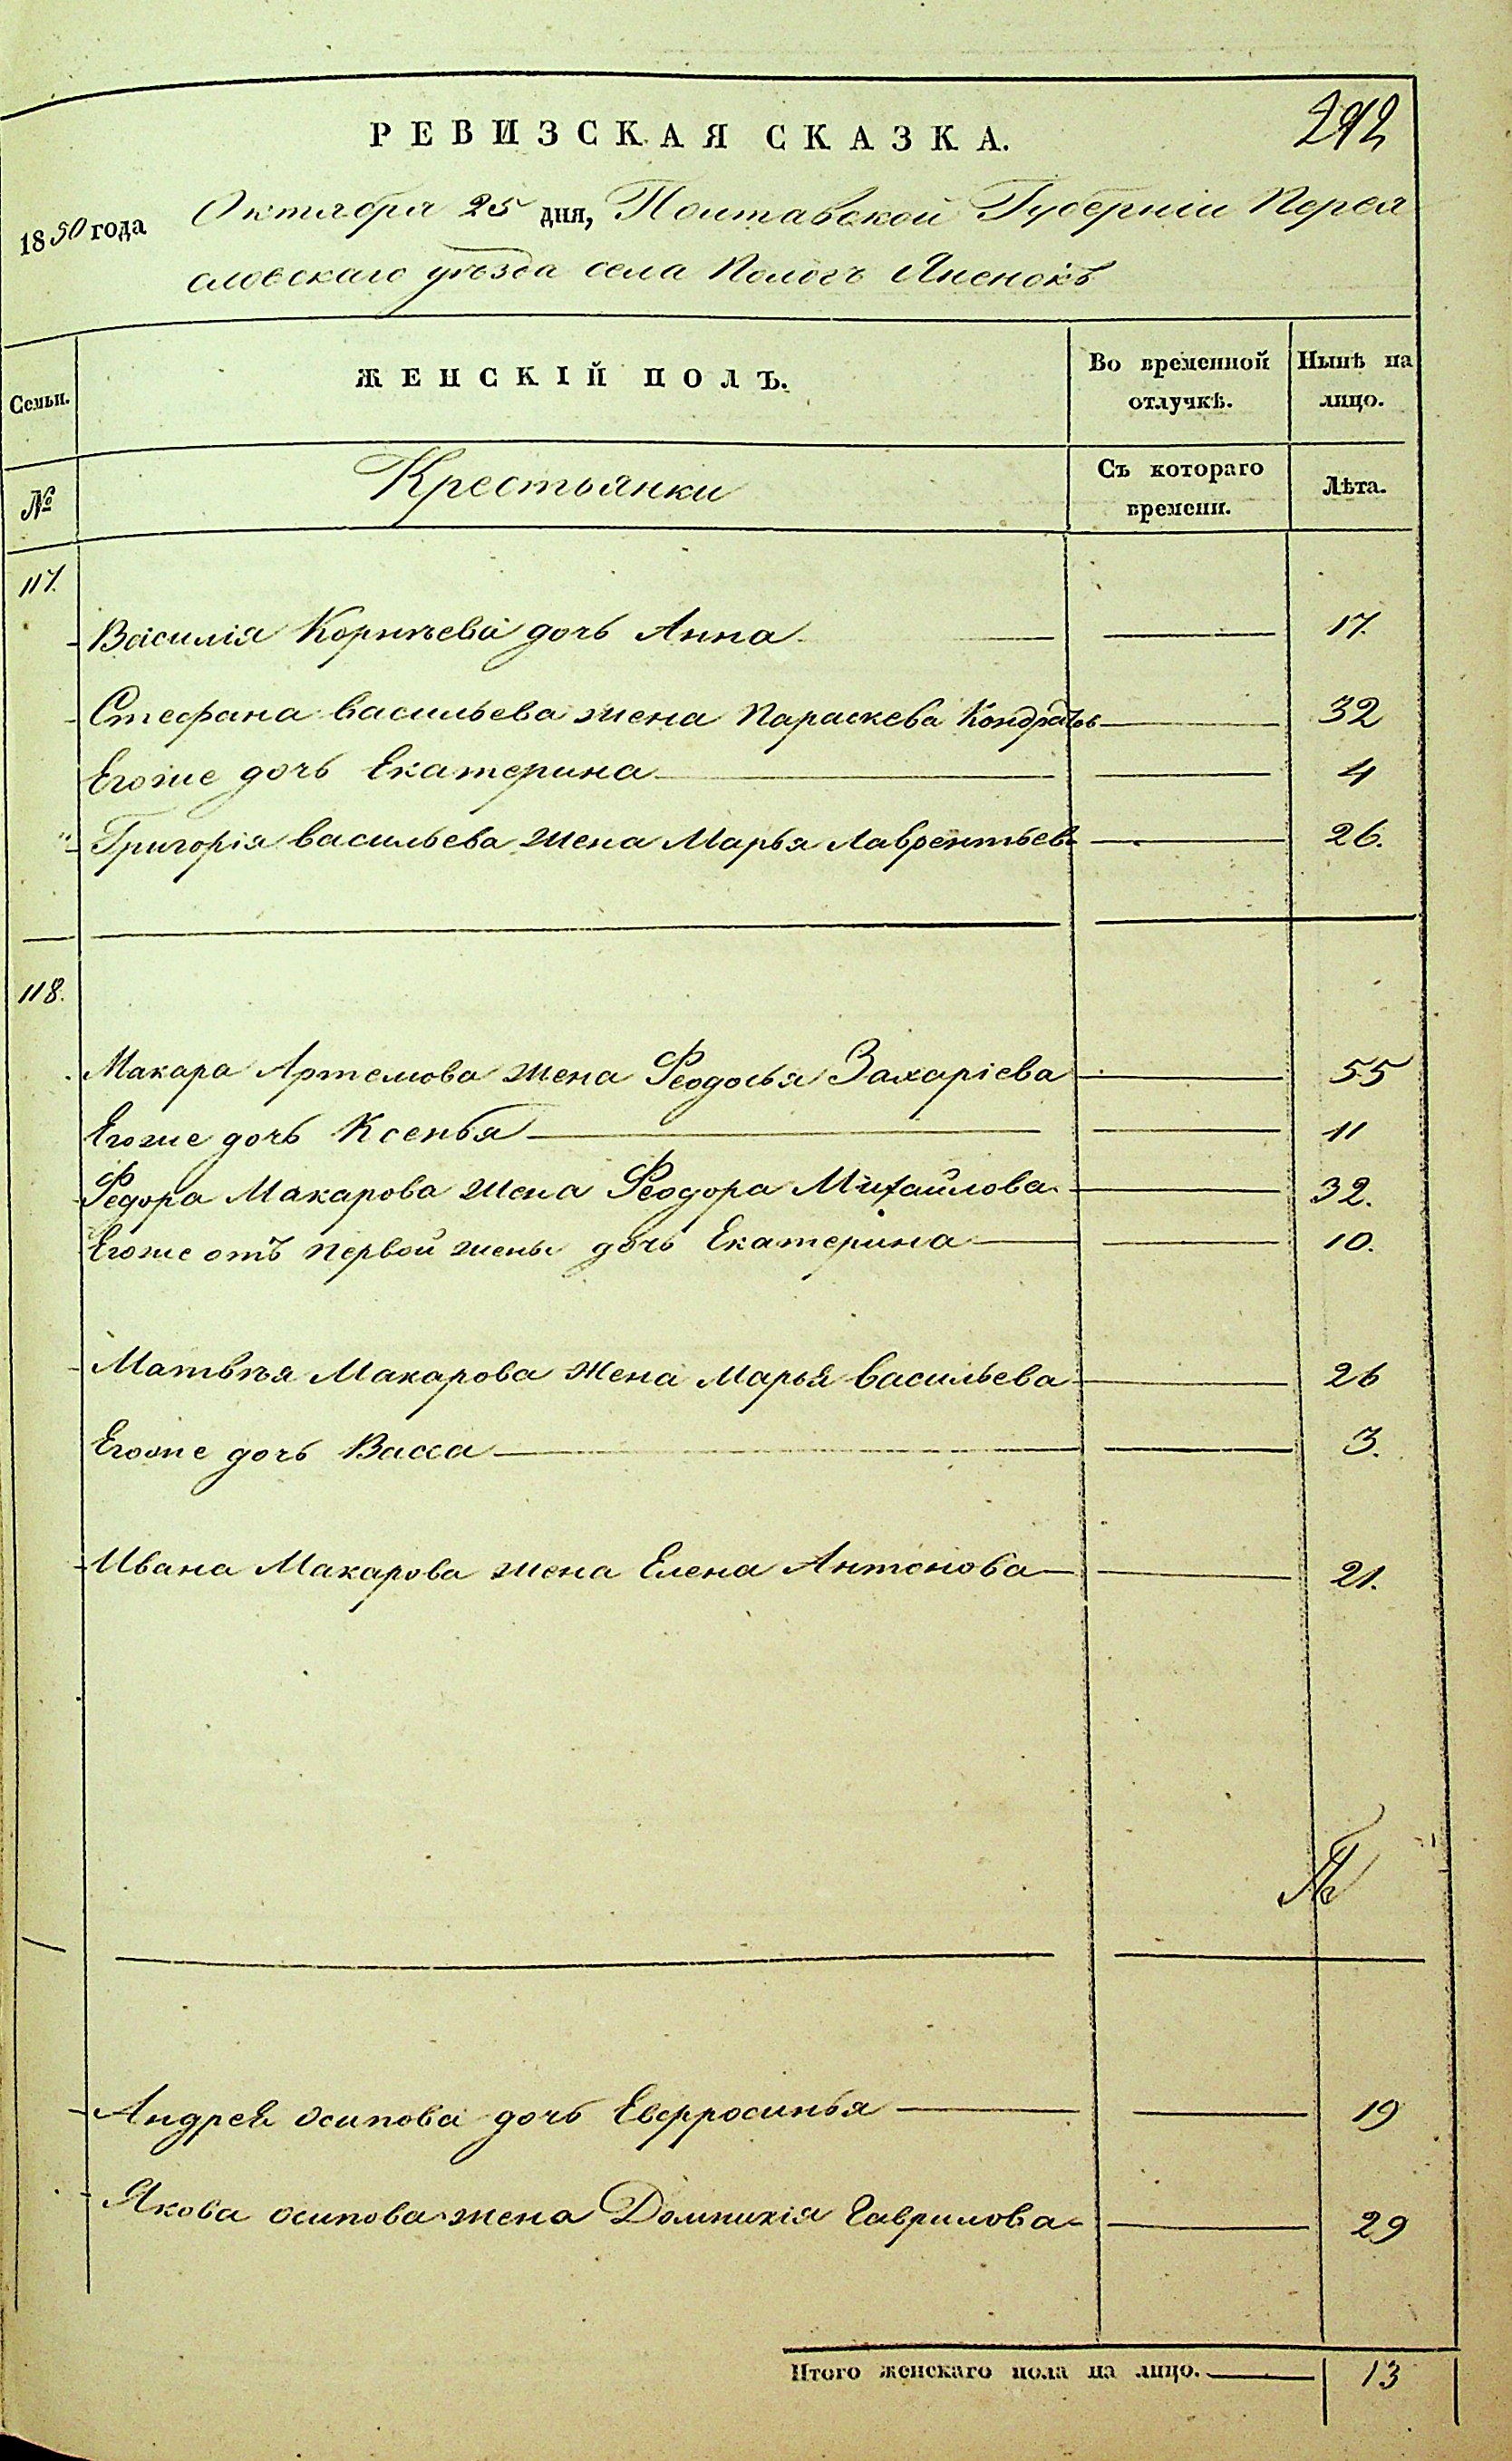 292
РЕВИЗСКАЯ СКАЗКА.
1850 года Октября 25 дня, Полтавской Губерніи Перея
словскаго уѣзда села Пологъ Яненокъ
Семьи. ЖЕНСКІЙ ПОЛЪ. Во временной отлучкѣ. Нынѣ на лицо.
№ Крестьянки Съ котораго времени. Лѣта.
117.
Василія Корнѣева дочь Анна 17.
Стефана Васильева жена Параскева Кондратьев 32
Егоже дочь Екатерина 4
Григорія Васильева жена Марья Лаврентьев 26.
118.
Макара Артемова жена Феодосья Захаріева 55
Егоже дочь Ксенья 11
Федора Макарова жена Феодора Михайлова 32.
Егоже отъ первой жены дочь Екатерина 10.
Матвѣя Макарова жена Марья Васильева 26
Егоже дочь Васса 3.
Ивана Макарова жена Елена Антонова 21.
Андрея Осипова дочь Евфросинья 19
Якова Осипова жена Домникія Гаврилова 29
Итого женскаго пола на лицо. 13